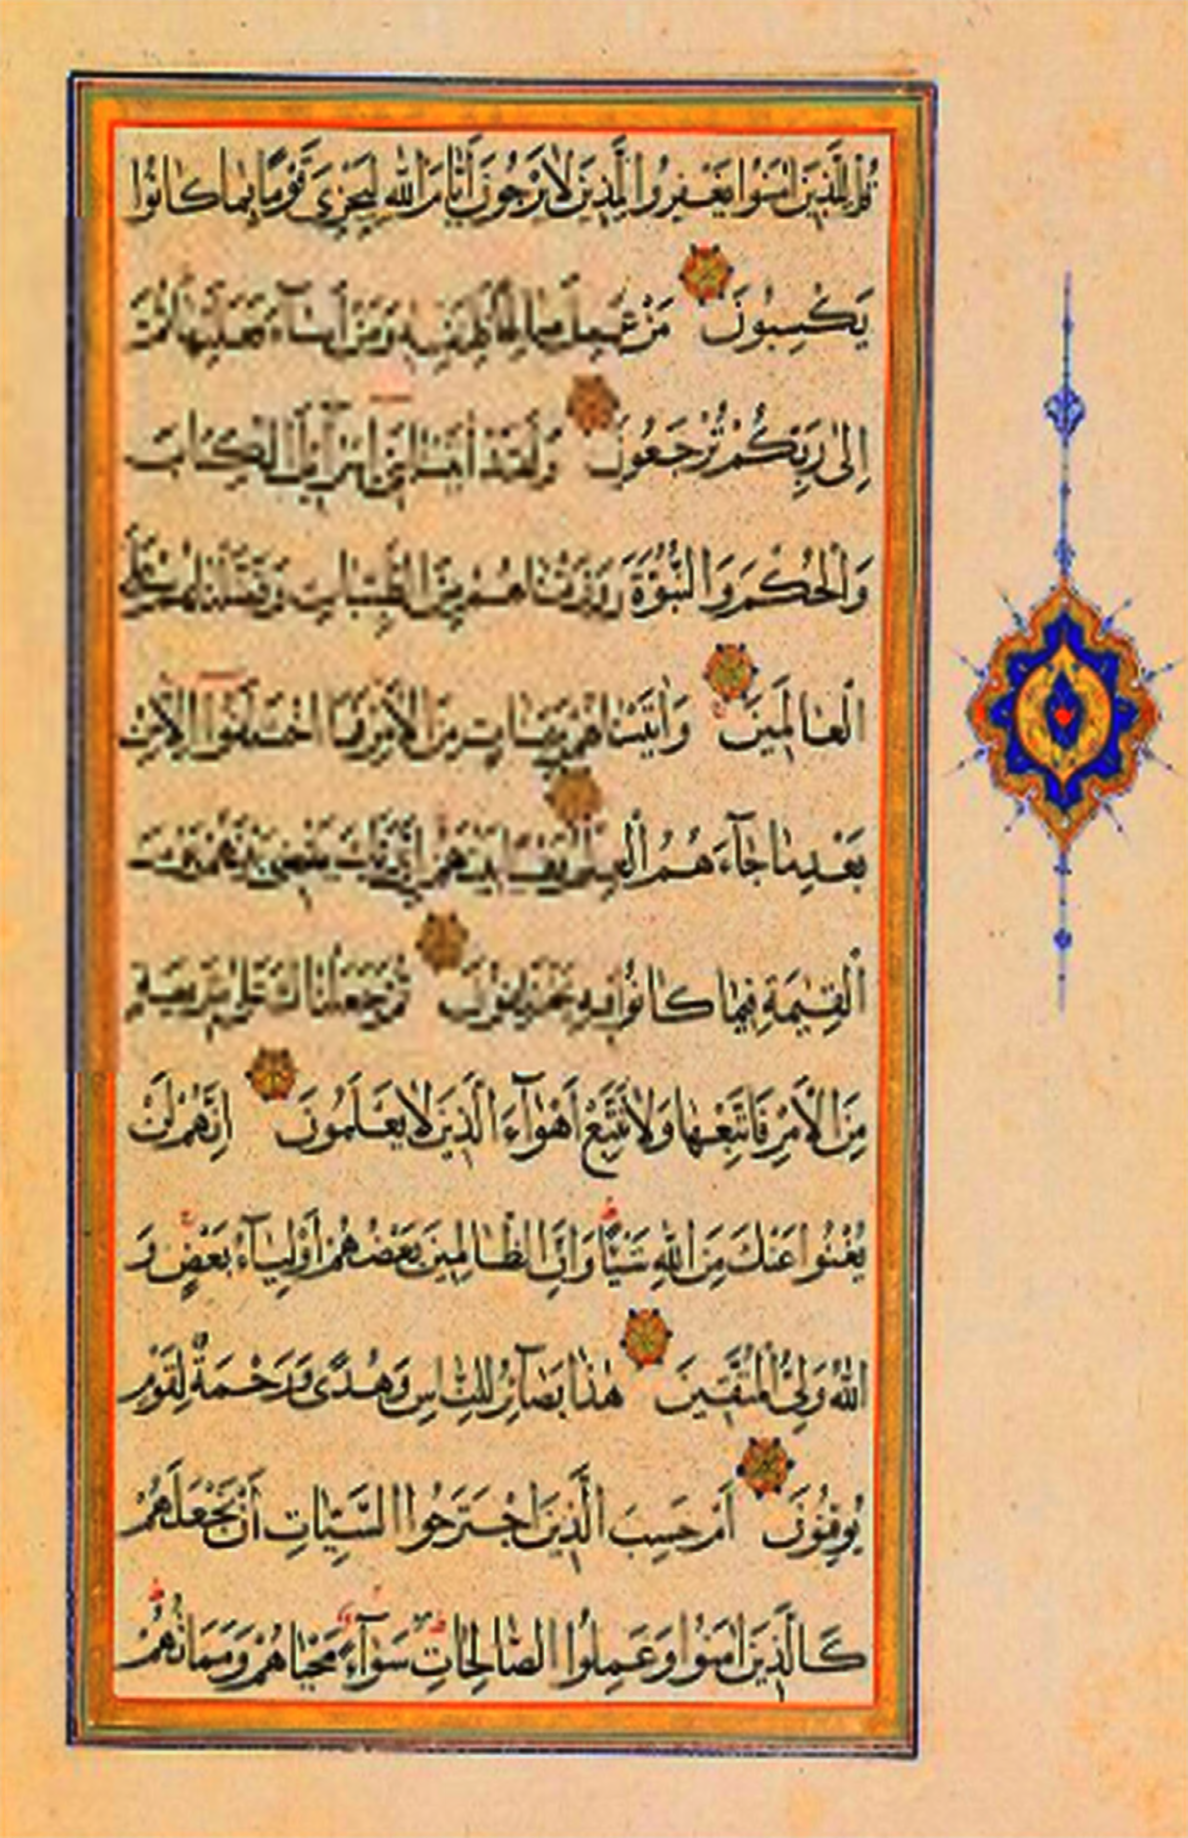 قُلْ لِلَّذِينَ اٰمَنُوا يَغْفِرُوا لِلَّذِينَ لَا يَرْجُونَ أَيَّامَ اللّٰهِ لِيَجْزِيَ قَوْمًا بِمَا كَانُوا
يَكْسِبُونَ مَنْ عَمِلَ صَالِحًا فَلِنَفْسِهِ وَمَنْ أَسَآءَ فَعَلَيْهَا ثُمَّ
اِلٰى رَبِّكُمْ تُرْجَعُونَ وَلَقَدْ اٰتَيْنَا بَنِي اِسْرَآئِيلَ الْكِتَابَ
وَالْحُكْمَ وَالنُّبُوَّةَ وَرَزَقْنَاهُمْ مِنَ الطَّيِّبَاتِ وَفَضَّلْنَاهُمْ عَلَى
الْعَالَمِينَ وَاٰتَيْنَاهُمْ بَيِّنَاتٍ مِنَ الْأَمْرِ فَمَا اخْتَلَفُوا اِلَّا مِنْ
بَعْدِ مَا جَآءَهُمُ الْعِلْمُ بَغْيًا بَيْنَهُمْ اِنَّ رَبَّكَ يَقْضِي بَيْنَهُمْ يَوْمَ
الْقِيٰمَةِ فِيمَا كَانُوا فِيهِ يَخْتَلِفُونَ ثُمَّ جَعَلْنَاكَ عَلٰى شَرِيعَةٍ
مِنَ الْأَمْرِ فَاتَّبِعْهَا وَلَا تَتَّبِعْ أَهْوَآءَ الَّذِينَ لَا يَعْلَمُونَ اِنَّهُمْ لَنْ
يُغْنُوا عَنْكَ مِنَ اللّٰهِ شَيْئًا وَاِنَّ الظَّالِمِينَ بَعْضُهُمْ أَوْلِيَآءُ بَعْضٍ وَ
اللّٰهُ وَلِيُّ الْمُتَّقِينَ هٰذَا بَصَآئِرُ لِلنَّاسِ وَهُدًى وَرَحْمَةٌ لِقَوْمٍ
يُوقِنُونَ أَمْ حَسِبَ الَّذِينَ اجْتَرَحُوا السَّيِّئَاتِ أَنْ نَجْعَلَهُمْ
كَالَّذِينَ اٰمَنُوا وَعَمِلُوا الصَّالِحَاتِ سَوَآءً مَحْيَاهُمْ وَمَمَاتُهُمْ